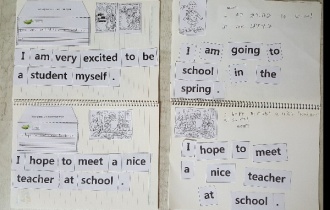 I am very excited to be
a student myself .
I am going to
school in the
spring .
I hope to meet a nice
teacher at school .
I hope to meet
a nice teacher
at school .